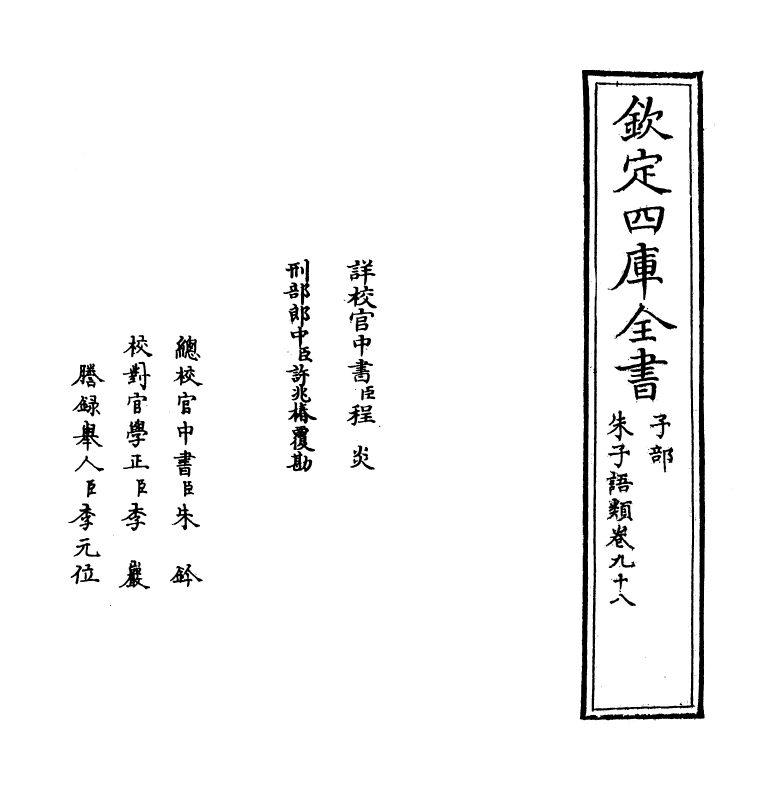 欽定四庫全書
子部
朱子語類卷九十八
詳校官中書臣程炎
刑部郎中臣許兆椿覆勘
總校官中書臣朱鈐
校對官學正臣李巖
謄録舉人臣李元位